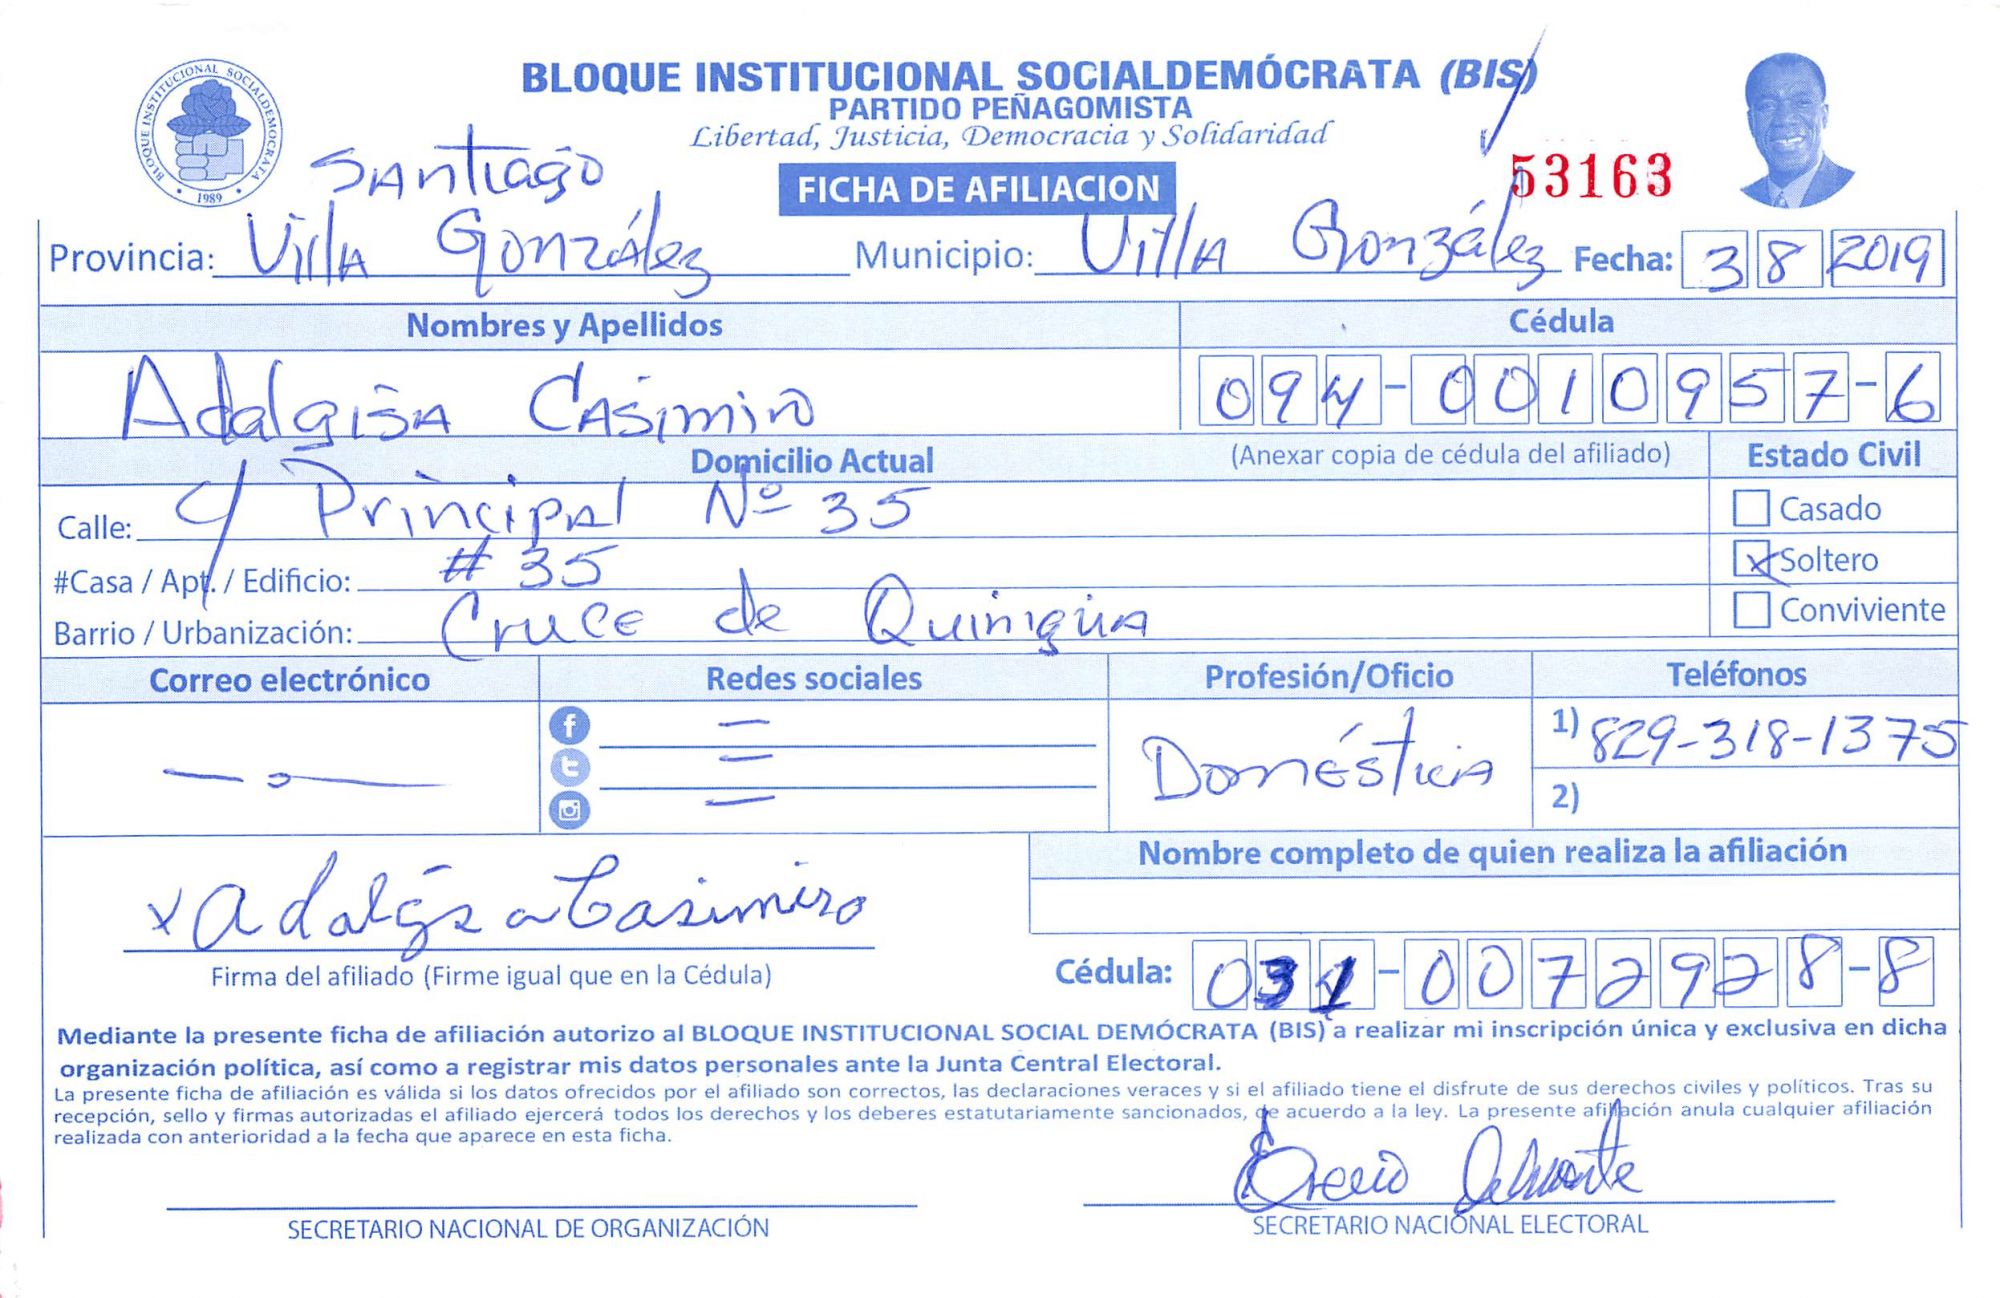 BLOQUE INSTITUCIONAL SOCIALDEMÓCRATA (BIS)
PARTIDO PEÑAGOMISTA
Libertad, Justicia, Democracia y Solidaridad
BLOQUE INSTITUCIONAL SOCIALDEMOCRATA
1989
FICHA DE AFILIACION
53163
Santiago
Provincia: Villa González Municipio: Villa González Fecha: 3 8 2019
Nombres y Apellidos Cédula
Adalgisa Casimiro 094-0010957-6
Domicilio Actual (Anexar copia de cédula del afiliado) Estado Civil
Calle: C/ Principal Nº 35 Casado
#Casa / Apt. / Edificio: # 35 x Soltero
Barrio / Urbanización: Cruce de Quinigua Conviviente
Correo electrónico Redes sociales Profesión/Oficio Teléfonos
Doméstica 1) 829-318-1375
2)
Nombre completo de quien realiza la afiliación
x Adalgisa Casimiro
Firma del afiliado (Firme igual que en la Cédula) Cédula: 031-0072928-8
Mediante la presente ficha de afiliación autorizo al BLOQUE INSTITUCIONAL SOCIAL DEMÓCRATA (BIS) a realizar mi inscripción única y exclusiva en dicha
organización política, así como a registrar mis datos personales ante la Junta Central Electoral.
La presente ficha de afiliación es válida si los datos ofrecidos por el afiliado son correctos, las declaraciones veraces y si el afiliado tiene el disfrute de sus derechos civiles y políticos. Tras su
recepción, sello y firmas autorizadas el afiliado ejercerá todos los derechos y los deberes estatutariamente sancionados, de acuerdo a la ley. La presente afiliación anula cualquier afiliación
realizada con anterioridad a la fecha que aparece en esta ficha.
SECRETARIO NACIONAL DE ORGANIZACIÓN SECRETARIO NACIONAL ELECTORAL